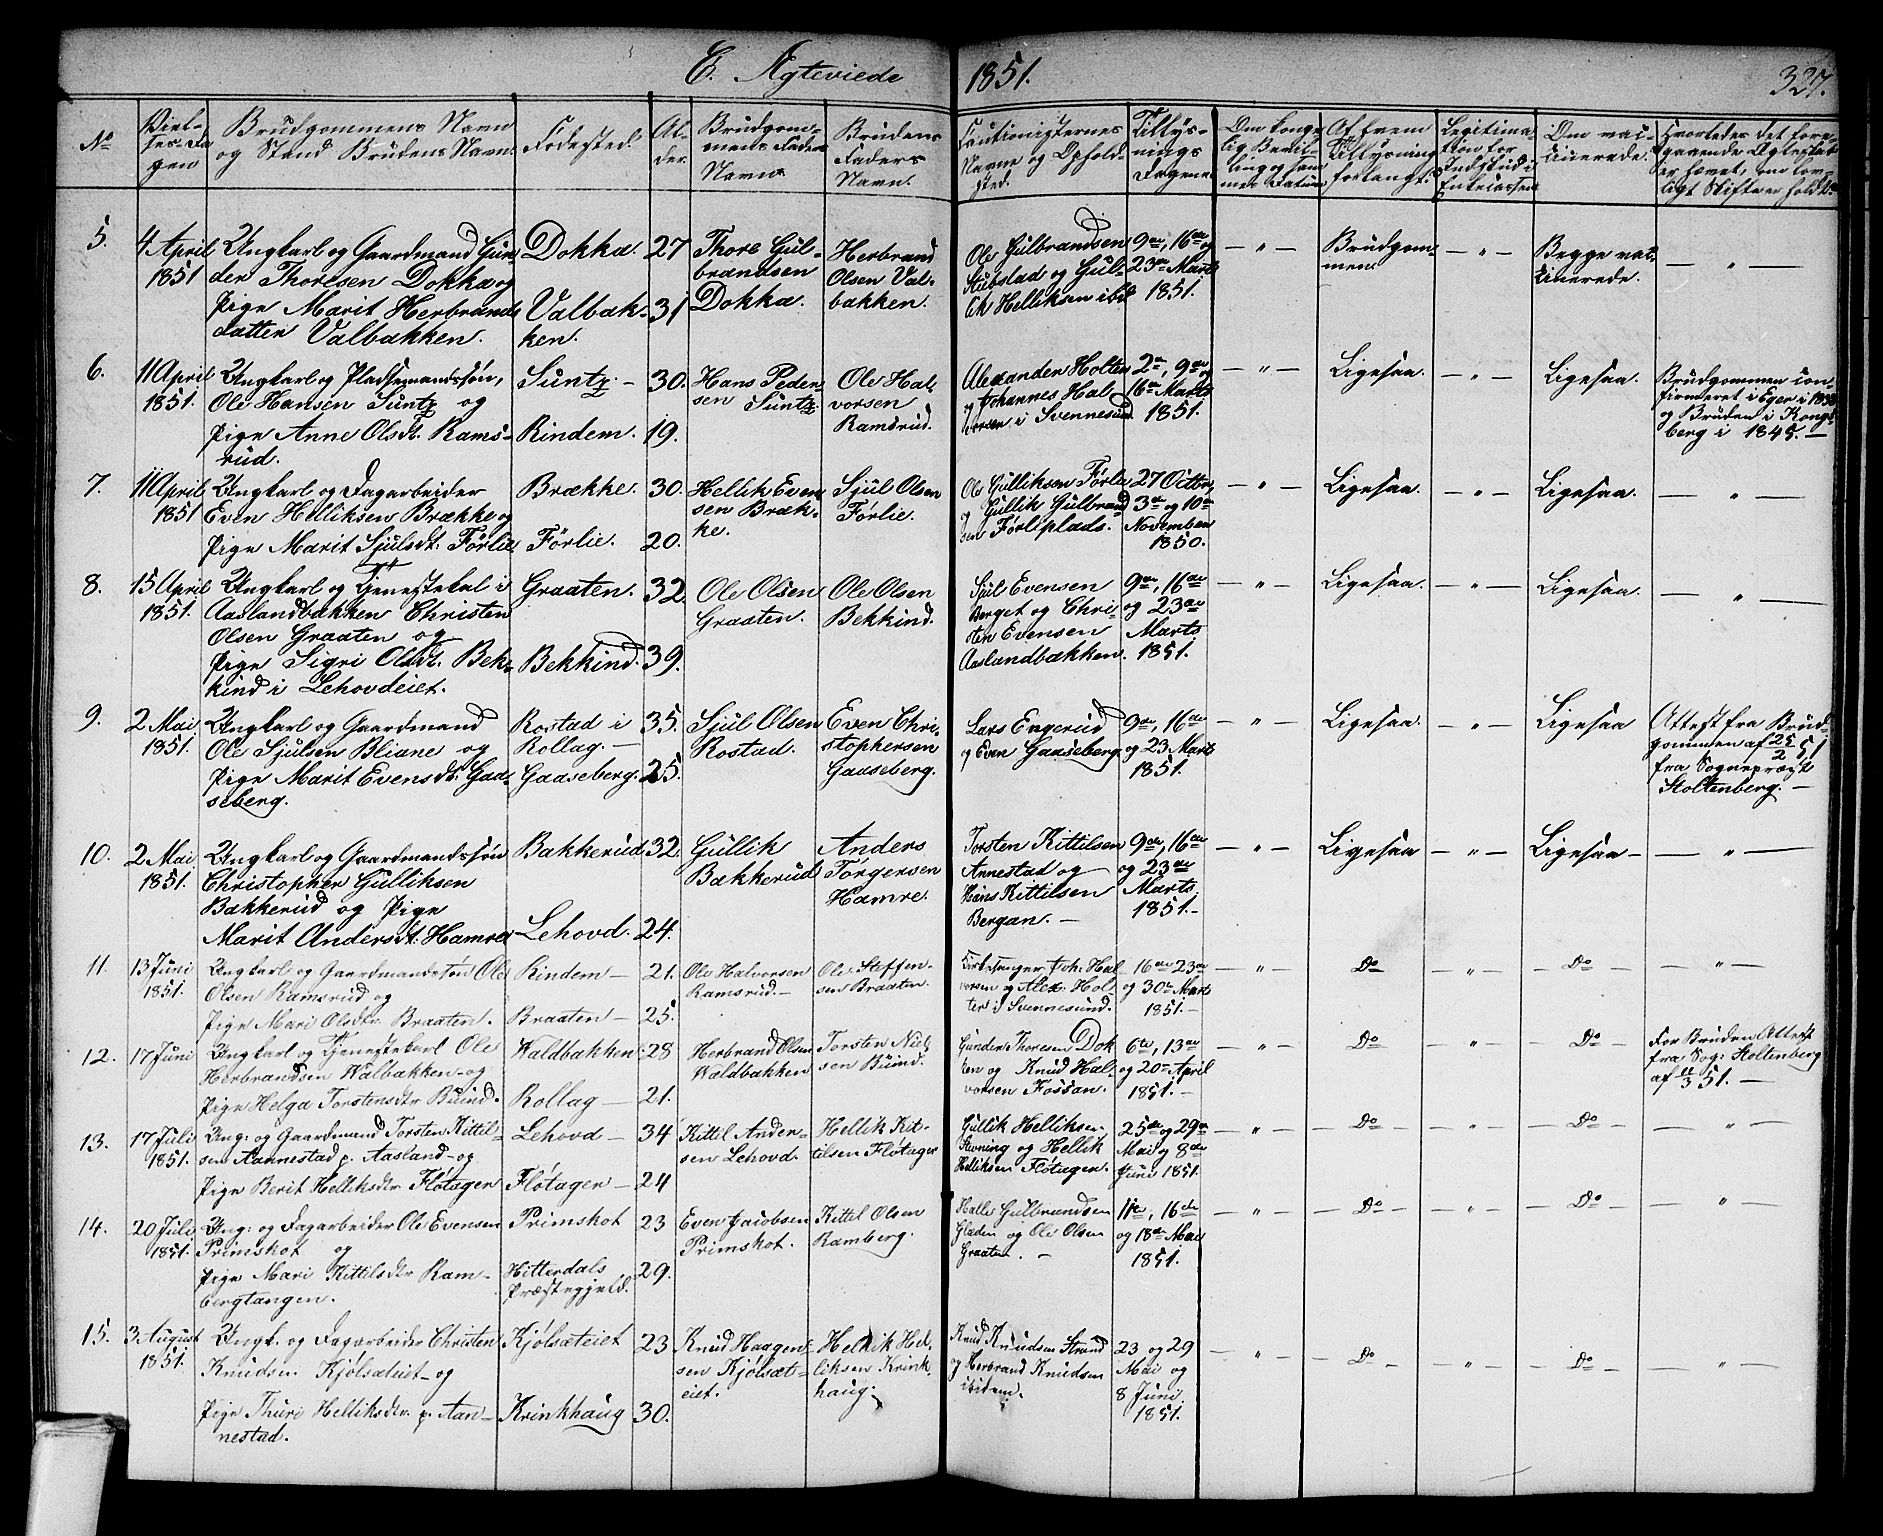 C. Ægteviede 1851. 327.
No
Viel-
ses-Da
gen
Brudgommens Navn
og Stand Brudens Navn.
Fødested.
Al-
der.
Brudgom-
mens Faders
Navn.
Brudens
Faders
Navn.
Cautionisternes
Navne og Opholds
sted.
Tillys-
nings
Dagene.
Om konge
lig Bevil-
ling og sam
mes Datum
Af hvem
Tillysning
forlangt.
Legitima-
tion for
Indskud i
Enkecassen
Om vac-
cinerede.
Hvorledes det fore-
gaaende Ægteskab
er hævet, om lov-
ligt Skifte er holdt.
5.
4 April
1851
Ungkarl og Gaardmand Gun-
der Thoresen Dokka og
Pige Marit Herbrands
datter Valbakken.
Dokka.
Valbak-
ken.
27
31
Thore Gul-
brandsen
Dokka.
Herbrand
Olsen Val-
bakken.
Ole Gulbrandsen
Stubstad og Gul-
ik Helliksen ibid
9de, 16de og
23de Marts
1851.
— " —
Brudgom-
men.
— " —
Begge vac-
cinerede.
— " —
6.
11 April
1851.
Ungkarl og Pladsemandssøn,
Ole Hansen Suntz og
Pige Anne Olsdt. Rams-
rud.
Suntz. —
Rindem.
30.
19.
Hans Peder-
sen Suntz.
Ole Hal-
vorsen
Ramsrud.
Alexander Holter
og Johannes Hal-
vorsen i Svennesund
2de, 9de og
16de Marts
1851.
— " —
Ligesaa.
— " —
Ligesaa.
Brudgommen con-
firmeret i Eger i 1838
og Bruden i Kongs
berg i 1845. —
7.
11 April
1851
Ungkarl og Dagarbeider
Even Helliksen Brække og
Pige Marit Sjulsdt. Førlie
Brække.
Førlie.
30.
20.
Hellik Even
sen Bræk-
ke.
Sjul Olsen
Førlie.
Ole Gulliksen Førlie
og Gullik Gulbrand
sen Førliplads.
27 Octbr,
3de og 10de
November
1850.
— " —
Ligesaa.
— " —
Ligesaa.
— " —
8.
15 April
1851.
Ungkarl og Tjenestekal i
Aaslandbakken Christen
Olsen Graaten og
Pige Sigri Olsdt. Bek-
kind i Lehovdeiet.
Graaten.
Bekkind.
32
39.
Ole Olsen
Graaten.
Ole Olsen
Bekkind.
Sjul Evensen
Berget og Chri-
sten Evensen
Aaslandbakken.
9de, 16de
og 23de
Marts
1851.
— " —
Ligesaa.
— " —
Ligesaa.
— " —
9.
2 Mai
1851.
Ungkarl og Gaardmand
Ole Sjulsen Bliane og
Pige Marit Evensdt. Gaa-
seberg.
Rostad i
Rollag. —
Gaaseberg.
35.
25.
Sjul Olsen
Rostad.
Even Chri-
stophersen
Gaaseberg.
Lars Engerud
og Even Gaaseberg.
9de, 16de
og 23 Marts
1851.
— " —
Ligesaa.
— " —
Ligesaa
Attest fra Brud-
gommen af 25/2 51
fra Sognepræst
Stoltenberg. —
10.
2 Mai
1851.
Ungkarl og Gaardmandssøn
Christopher Gulliksen
Bakkerud og Pige
Marit Andersdt. Hamre
Bakkerud
Lehovd.
32.
24.
Gullik
Bakkerud
Anders
Torgersen
Hamre.
Torsten Kittilsen
Annestad og
Hans Kittilsen
Bergan. —
9de, 16de
og 23de
Marts
1851. —
— " —
Ligesaa
— " —
Ligesaa —
— " —
11.
13 Juni
1851.
Ungkarl og Gaardmandssøn Ole
Olsen Ramsrud og
Pige Mari Olsdtr. Braaten.
Rindem —
Braaten —
21.
25.
Ole Halvorsen
Ramsrud. —
Ole Steffen-
sen Braaten.
Kirkesanger Joh. Hal-
vorsen og Alex. Hol-
ter i Svennesund.
16de 23de
og 30te Marts
1851. —
— " —
Do
— " —
Do
— " —
12.
17 Juni
Ungkarl og Tjenestekarl Ole
Herbrandsen Walbakken og
Pige Helga Torstensdtr Buind.
Waldbakken
Rollag —
28
21.
Herbrand Olsen
Waldbakken
Torsten Niel
sen Buind.
Gunder Thoresen Dok
ken og Knud Hal-
vorsen Fossan.
6te, 13de
og 20de April
1851. —
— " —
Do
— " —
Do
For Bruden Attest
fra Sog: Stoltenberg
af 11/3 51. —
13.
17 Juli
1851.
Ung: og Gaardmand Torsten Kittil-
sen Aannestad p. Aasland og
Pige Berit Helliksdtr Fløtager
Lehovd —
Fløtager —
34
24
Kittil Ander-
sen Lehovd.
Hellik Kit-
tilsen Fløtager
Gullik Helliksen
Stevning og Hellik
Helliksen Fløtager.
25de og 29de
Mai og 8de
Juni 1851.
— " —
Do
— " —
Do
— " —
14.
20 Juli
1851.
Ung: og Dagarbeider Ole Evensen
Primskot og
Pige Mari Kittilsdtr Ram-
bergtangen.
Primskot
Hitterdals
Præstegjeld.
23
29.
Even Jacobsen
Primskot.
Kittil Olsen
Ramberg.
Halle Gulbrandsen
Gladen og Ole Olsen
Graaten. —
11te, 16de
og 18de Mai
1851.
— " —
Do
— " —
Do
— " —
15.
3 August
1851.
Ungk. og Dagarbeider Christen
Knudsen Kjølsæteiet og
Pige Thuri Helliksdtr. p. Aan-
nestad.
Kjølsæteiet
Krinkhaug
23
30.
Knud Haagen-
sen Kjølsæt-
eiet.
Hellik Hel-
liksen Krink
haug.
Knud Knudsen Strand
og Herbrand Knudsen
ibidem.
23 og 29
Mai og
8 Juni
1851.
— " —
Do
— " —
Do
— " —